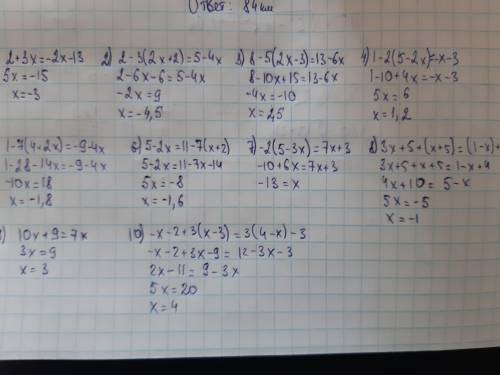 Ответ: 84 км
2+3x=-2x-13
5x=-15
x=-3
2) 2-3(2x+2)=5-4x
2-6x-6=5-4x
-2x=9
x=-4,5
3) 8-5(2x-3)=13-6x
8-10x+15=13-6x
-4x=-10
x=2,5
4) 1-2(5-2x)=-x-3
1-10+4x=-x-3
5x=6
x=1,2
1-7(4+2x)=-9-4x
1-28-14x=-9-4x
-10x=18
x=-1,8
6) 5-2x=11-7(x+2)
5-2x=11-7x-14
5x=-8
x=-1,6
7) -2(5-3x)=7x+3
-10+6x=7x+3
-13=x
8) 3x+5+(x+5)=(1-x)+
3x+5+x+5=1-x+4
4x+10=5-x
5x=-5
x=-1
) 10x+9=7x
3x=9
x=3
10) -x-2+3(x-3)=3(4-x)-3
-x-2+3x-9=12-3x-3
2x-11=9-3x
5x=20
x=4